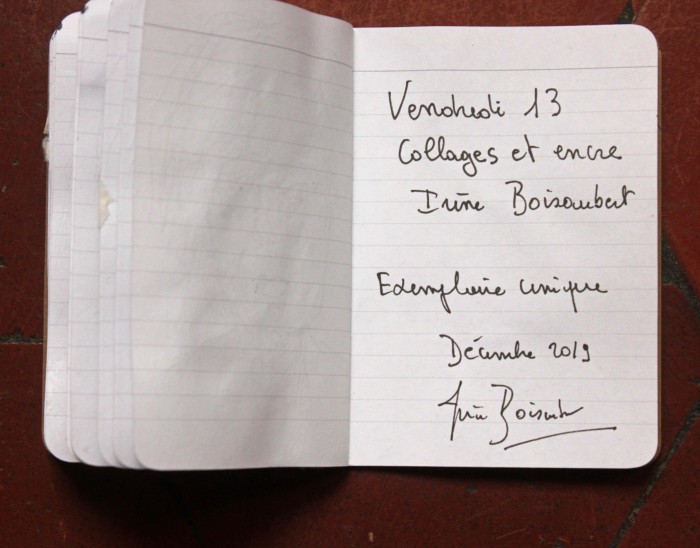 Vendredi 13
Collages et encre
Irène Boisaubert
Exemplaire unique
Décembre 2019
Irène Boisaubert